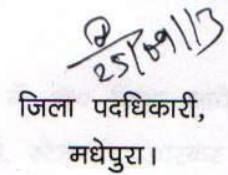 25/09/13
जिला पदधिकारी,
मधेपुरा।